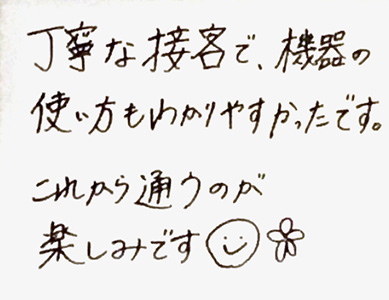 丁寧な接客で、機器の
使い方もわかりやすかったです。
これから通うのが
楽しみです